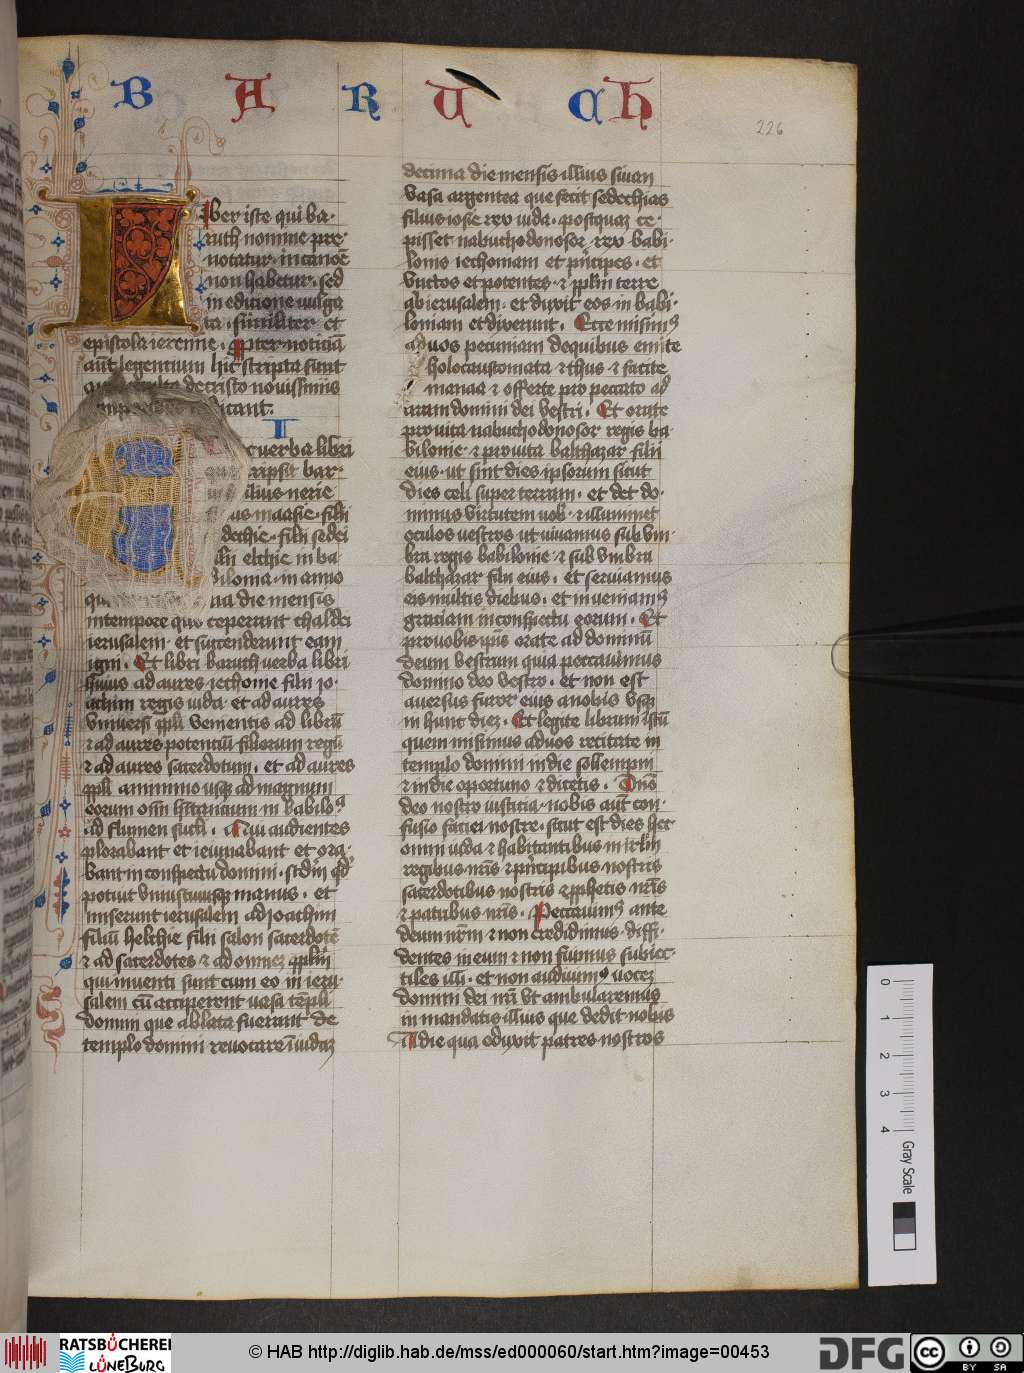 BARUCH
226
Liber iste qui ba-
ruth nomine pre-
notatur · in canoē
non habetur · sed
in edicione uulga
ta · similiter et
epistola ieremie . Pter noticiā
aūt legentium hic scripta sunt
de cristo nouissimis
indicant.
I
verba libri
bar-
filius nerie
maasie · filii
dechie · filii sedei
filii elchie in ba
bilonia · in anno
die mensis
in tempore quo ceperunt chaldei
ierusalem · et succenderunt eam
igni . Et libri baruth verba libri
huius ad aures iechonie filii io-
achim regis iuda · et ad aures
vniuersi ppli venientis ad librū
⁊ ad aures potenciū filiorum regū
⁊ ad aures sacerdotum . et ad aures
ppli a minimo usq; ad magnum
eorum oīm hītancium in babiloa
ad flumen sudi . Qui audientes
plorabant et ieiunabant et ora-
bant in conspectu domini · scdm qd
potuit vniuscuiusq; manus . et
miserunt ierusalem ad ioachim
filiū helchie filii salon sacerdotē
⁊ ad sacerdotes ⁊ ad omnez pplm
qui inuenti sunt cum eo in ieru-
salem cū acciperent vasa templi
domini que ablata fuerant de
templo domini reuocare ī iudaz
decima die mensis illius siuan
Vasa argentea que fecit sedechias
filius iosie rex iuda · postquaz ce-
pisset nabuchodonosor rex babi-
lonis iechoniam et pncipes · et
vnctos et potentes · ⁊ pplm terre
ab ierusalem . et duxit eos in babi-
loniam et dixerunt . Ecce misim9
ad uos pecuniam de quibus emite
holocaustomata ⁊ thus ⁊ facite
manaa ⁊ offerte pro peccato ad
aram domini dei vestri . Et orate
pro vita nabuchodonosor regis ba-
bilonie · ⁊ pro vita balthazar filii
eius · ut sint dies ipsorum sicut
dies celi super terram . et det do-
minus virtutem nob · ⁊ illuminet
oculos uestros ut viuamus sub vm-
bra regis babilonie · ⁊ sub vmbra
balthazar filii eius . et seruiamus
eis multis diebus . et inueniam9
graciam in conspectu eorum . Et
pro uobis ipsis orate ad dominū
deum vestrum quia peccauimus
domino deo vestro . et non est
auersus furor eius a nobis vsq;
in hunc diez . Et legite librum istū
quem misimus ad uos recitate in
templo domini in die sollempni
⁊ in die oportuno ⁊ dicetis . Dnō
deo nostro iusticia · nobis aūt con-
fusio faciei nostre . sicut est dies hec
omni iuda ⁊ habitantibus in irlm
regibus nris ⁊ pncipibus nostris
sacerdotibus nostris ⁊ pphetis nris
⁊ patribus nris . Peccauim9 ante
deum nrm ⁊ non credidimus · diffi-
dentes in eum ⁊ non fuimus subiec-
tiles illi . et non audiuim9 vocez
domini dei nri vt ambularemus
in mandatis illius que dedit nobis
A die qua eduxit patres nostros
0 1 2 3 4 Gray Scale
RATSBÜCHEREI
LÜNEBURG
© HAB http://diglib.hab.de/mss/ed000060/start.htm?image=00453
DFG
cc BY SA